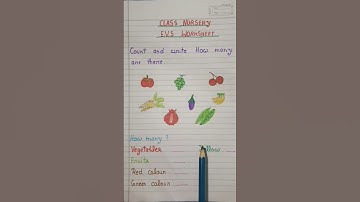 CLASS NURSERY
E.V.S WORKSHEET
Count and write How many
are there.
How many?
Vegetables
Fruits
Red colour
Green colour